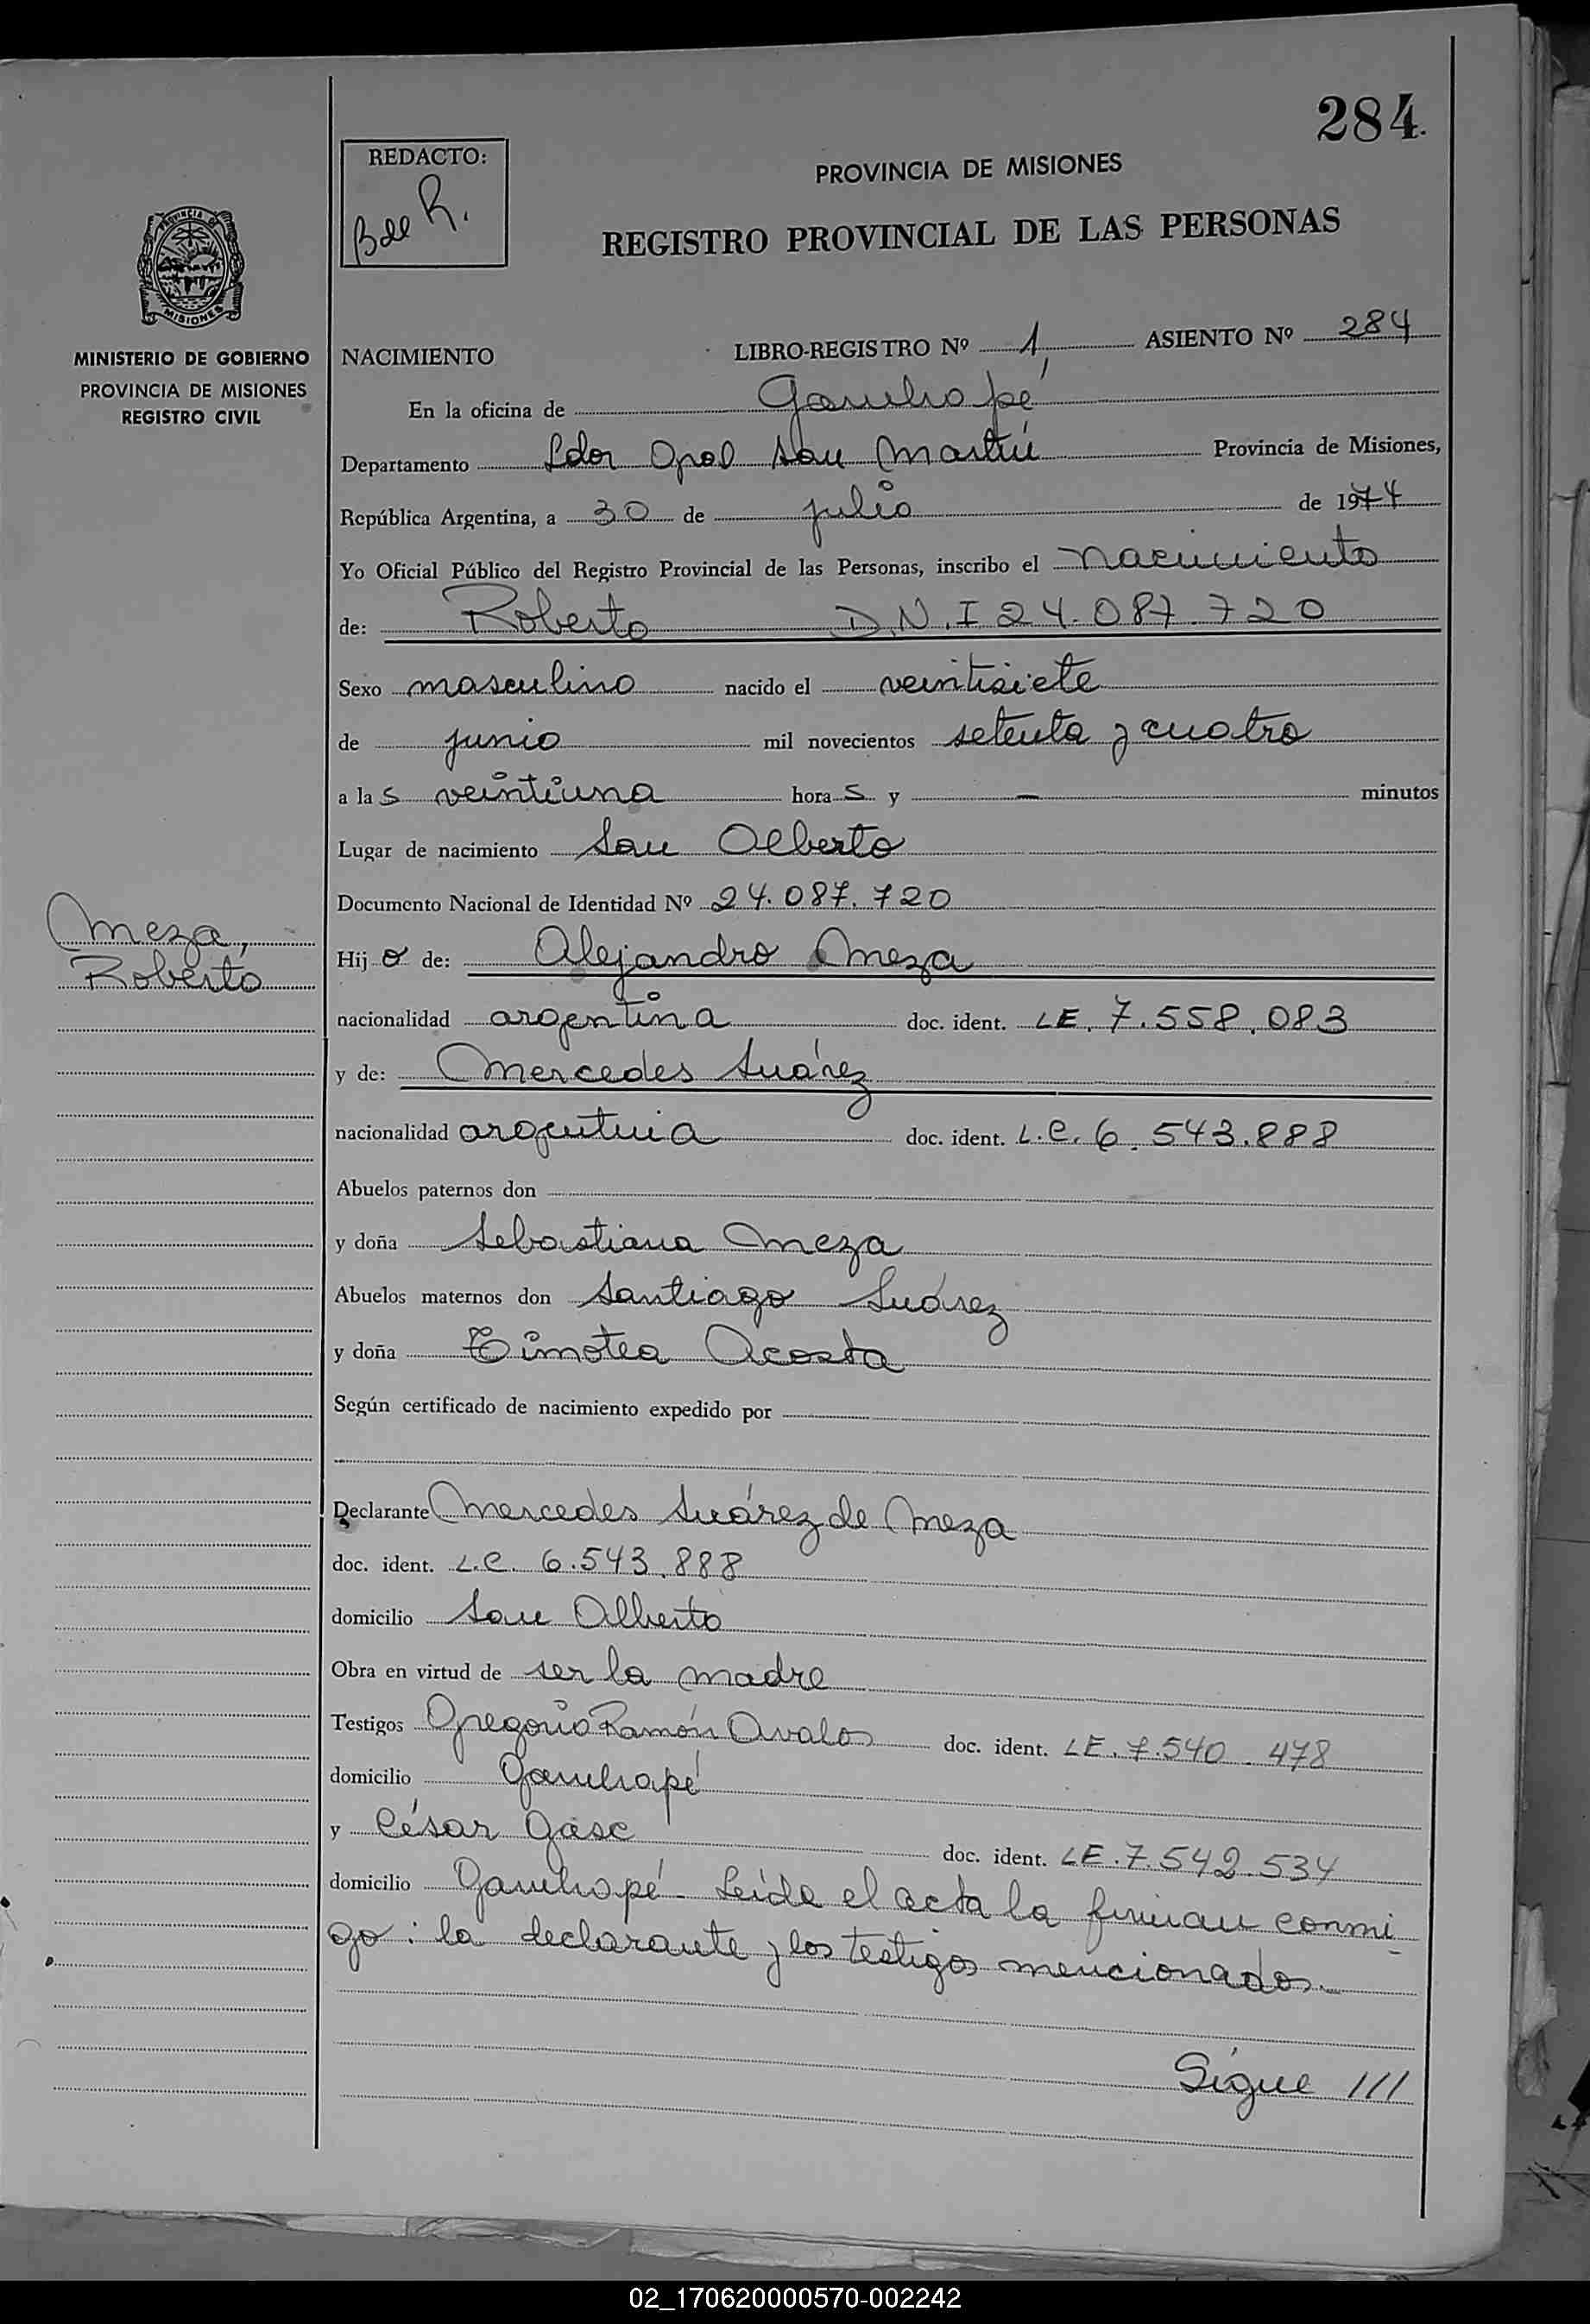 284.
REDACTO:
Bdl R.
PROVINCIA DE MISIONES
REGISTRO PROVINCIAL DE LAS PERSONAS
MINISTERIO DE GOBIERNO
PROVINCIA DE MISIONES
REGISTRO CIVIL
NACIMIENTO LIBRO-REGISTRO Nº 1, ASIENTO Nº 284
En la oficina de Garuhapé
Departamento Ldor Gral San Martín Provincia de Misiones,
República Argentina, a 30 de julio de 1974
Yo Oficial Público del Registro Provincial de las Personas, inscribo el nacimiento
de: Roberto D.N.I 24.087.720
Sexo masculino nacido el veintisiete
de junio mil novecientos setenta y cuatro
a las veintiuna horas y — minutos
Lugar de nacimiento San Alberto
Documento Nacional de Identidad Nº 24.087.720
Meza,
Roberto
Hijo de: Alejandro Meza
nacionalidad argentina doc. ident. LE. 7.558.083
y de: Mercedes Suárez
nacionalidad argentina doc. ident. L.C. 6.543.888
Abuelos paternos don
y doña Sebastiana Meza
Abuelos maternos don Santiago Suárez
y doña Timotea Acosta
Según certificado de nacimiento expedido por
Declarante Mercedes Suárez de Meza
doc. ident. L.C. 6.543.888
domicilio San Alberto
Obra en virtud de ser la madre
Testigos Gregorio Ramón Avalos doc. ident. LE. 7.540.478
domicilio Garuhapé
y César Gasc doc. ident. LE. 7.542.534
domicilio Garuhapé - Leída el acta la firman conmi-
go: la declarante y los testigos mencionados.
Sigue ///
02_170620000570-002242